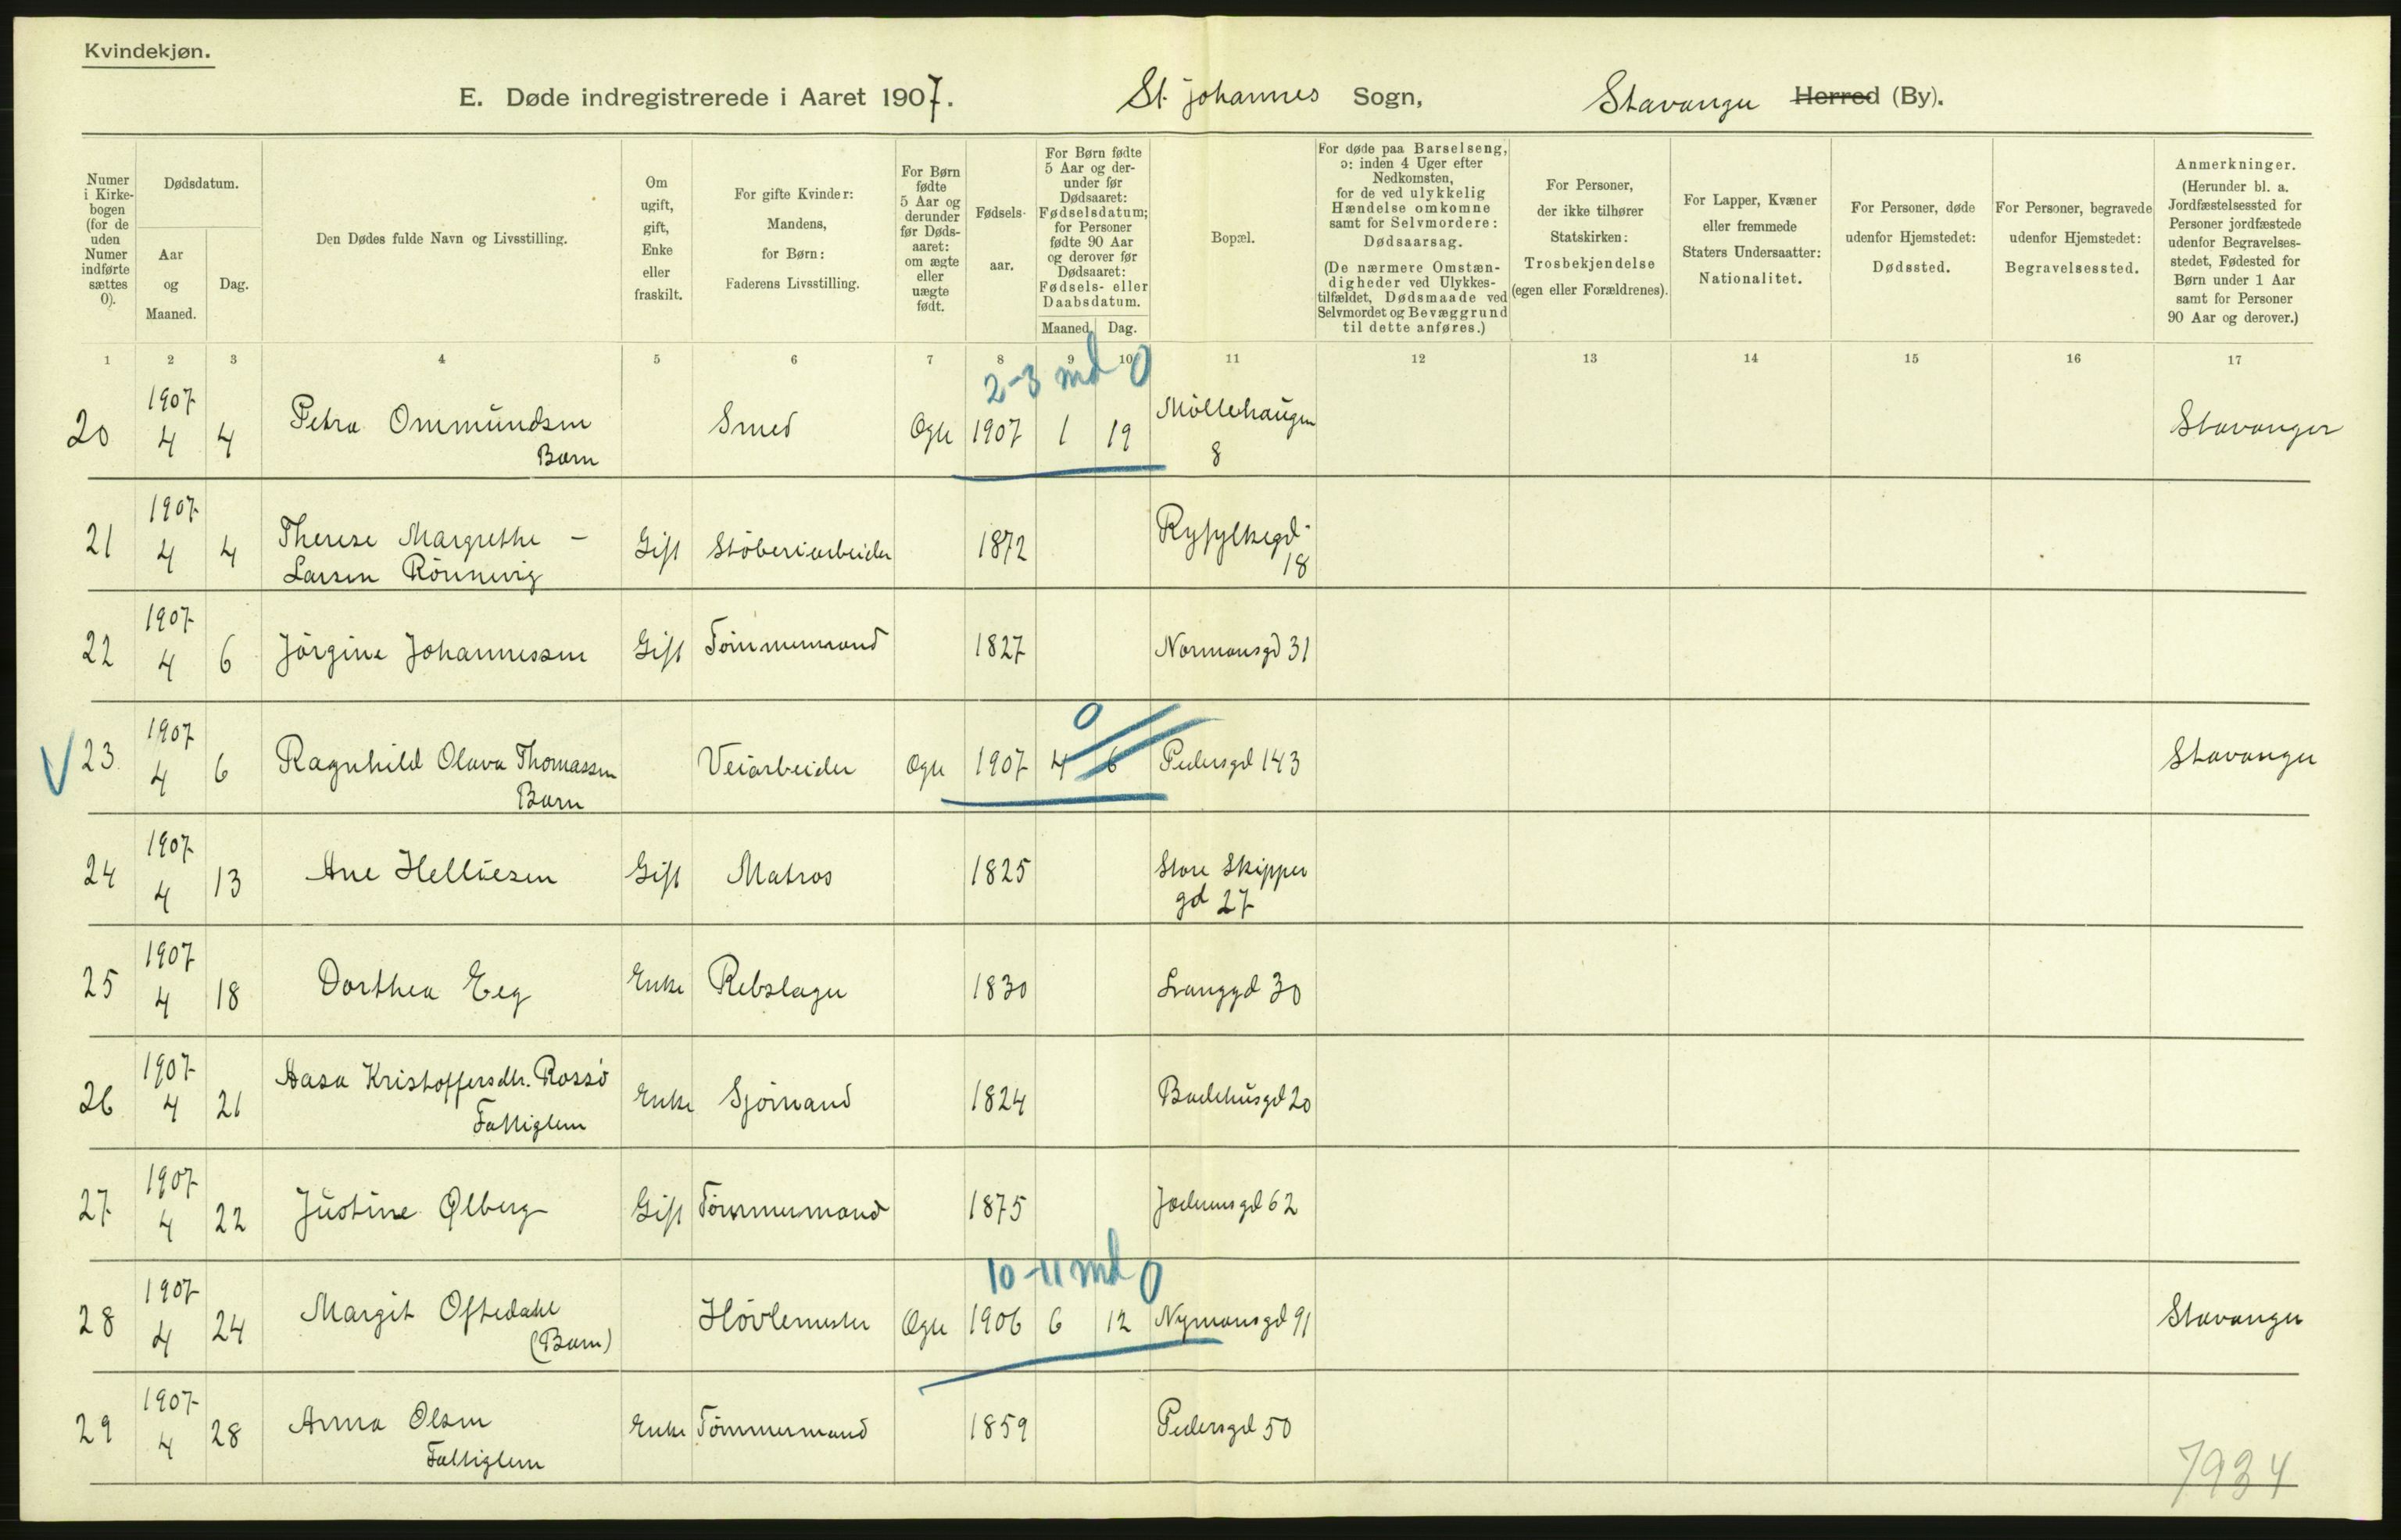 Kvindekjøn.
E. Døde indregistrerede i Aaret 1907. St. Johannes Sogn, Stavanger Herred (By).
Numer i Kirke-bogen (for de uden Numer indførte sættes 0).
Dødsdatum.
Aar og Maaned.
Dag.
Den Dødes fulde Navn og Livsstilling.
Om ugift, gift, Enke eller fraskilt.
For gifte Kvinder: Mandens, for Børn: Faderens Livsstilling.
For Børn fødte 5 Aar og derunder før Døds-aaret: om ægte eller uægte født.
Fødsels-aar.
For Børn fødte 5 Aar og der-under før Dødsaaret: Fødselsdatum; for Personer fødte 90 Aar og derover før Dødsaaret: Fødsels- eller Daabsdatum.
Maaned. Dag.
Bopæl.
For døde paa Barselseng, ɔ: inden 4 Uger efter Nedkomsten, for de ved ulykkelig Hændelse omkomne samt for Selvmordere: Dødsaarsag. (De nærmere Omstæn-digheder ved Ulykkes-tilfældet, Dødsmaade ved Selvmordet og Bevæggrund til dette anføres.)
For Personer, der ikke tilhører Statskirken: Trosbekjendelse (egen eller Forældrenes).
For Lapper, Kvæner eller fremmede Staters Undersaatter: Nationalitet.
For Personer, døde udenfor Hjemstedet: Dødssted.
For Personer, begravede udenfor Hjemstedet: Begravelsessted.
Anmerkninger. (Herunder bl. a. Jordfæstelsessted for Personer jordfæstede udenfor Begravelses-stedet, Fødested for Børn under 1 Aar samt for Personer 90 Aar og derover.)
1 2 3 4 5 6 7 8 9 10 11 12 13 14 15 16 17
2-3 md 0
20 1907 4 4 Petra Ommundsen Barn Smed Ægte 1907 1 19 Möllehaugen 8 Stavanger
21 1907 4 4 Therese Margrethe - Larsen Rönnevig Gift Stöberiarbeider 1872 Ryfylkegd 18
22 1907 4 6 Jörgine Johannessen Gift Tömmermand 1827 Normansgd 31
0
V 23 1907 4 6 Ragnhild Olava Thomassen Barn Veiarbeider Ægte 1907 4 6 Pedersgd 143 Stavanger
24 1907 4 13 Ane Helliesen Gift Matros 1825 Store Skipper gd 27
25 1907 4 18 Dorthea Eeg Enke Rebslager 1830 Langgd 30
26 1907 4 21 Aasa Kristoffersdtr. Rossö Fattiglem Enke Sjömand 1824 Badehusgd 20
27 1907 4 22 Justine Ølberg Gift Tömmermand 1875 Jæderensgd 62
10-11 md 0
28 1907 4 24 Margit Oftedahl (Barn) Hövlemester Ægte 1906 6 12 Nymansgd 91 Stavanger
29 1907 4 28 Anna Olsen Fattiglem Enke Tömmermand 1859 Pedersgd 50
7934